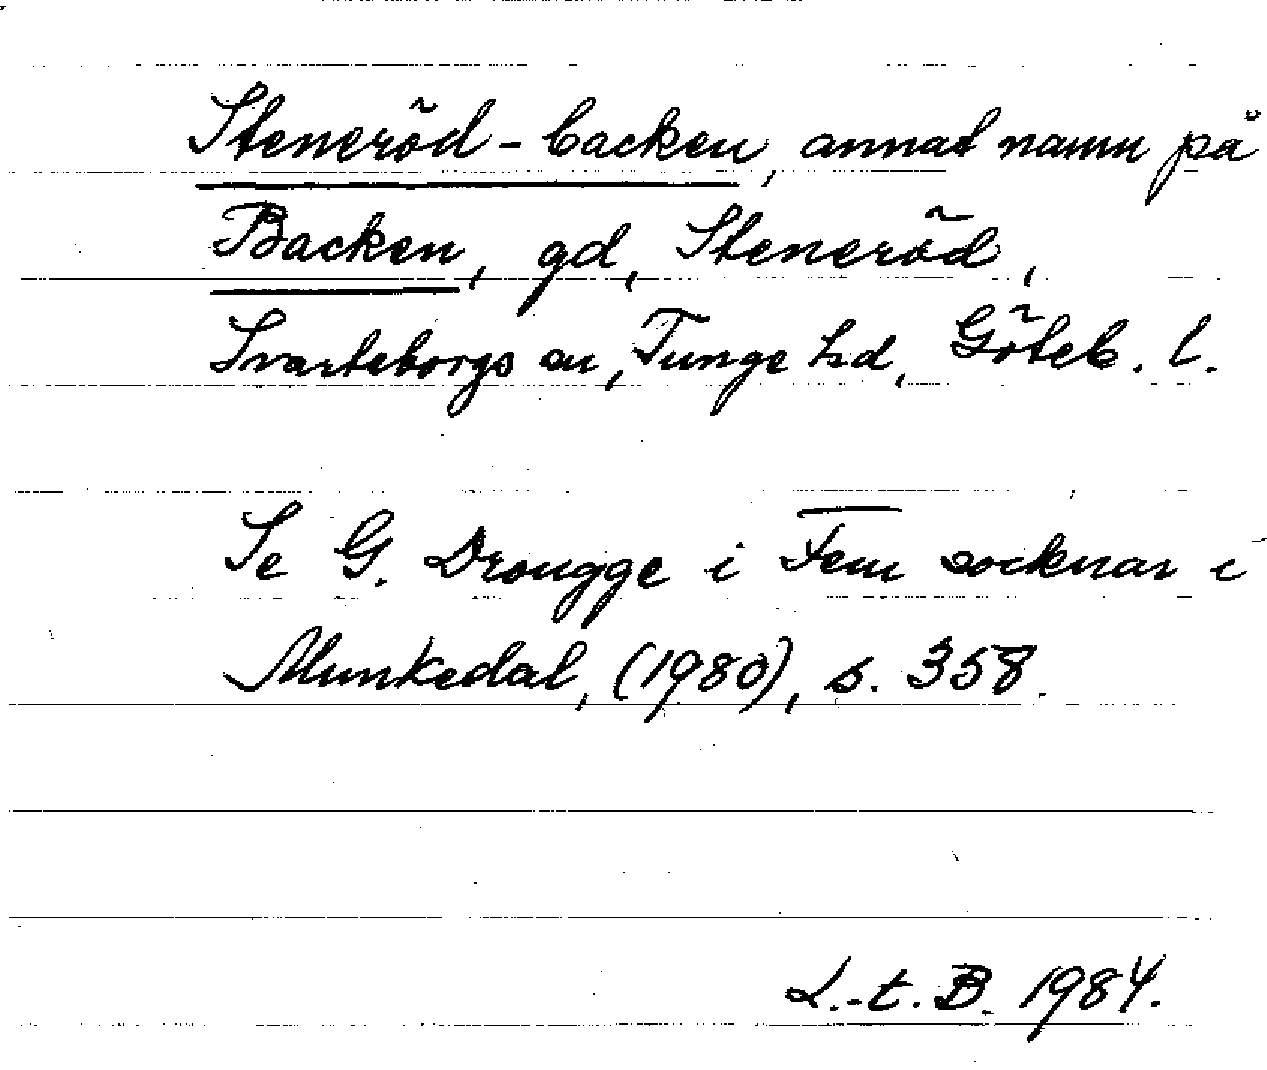 Steneröd-backen, annat namn på
Backen, gd, Steneröd,
Svarteborgs sn, Tunge hd, Göteb. l.
Se G. Drougge i Fem socknar i
Munkedal, (1980), s. 358.
L.-t. B. 1984.